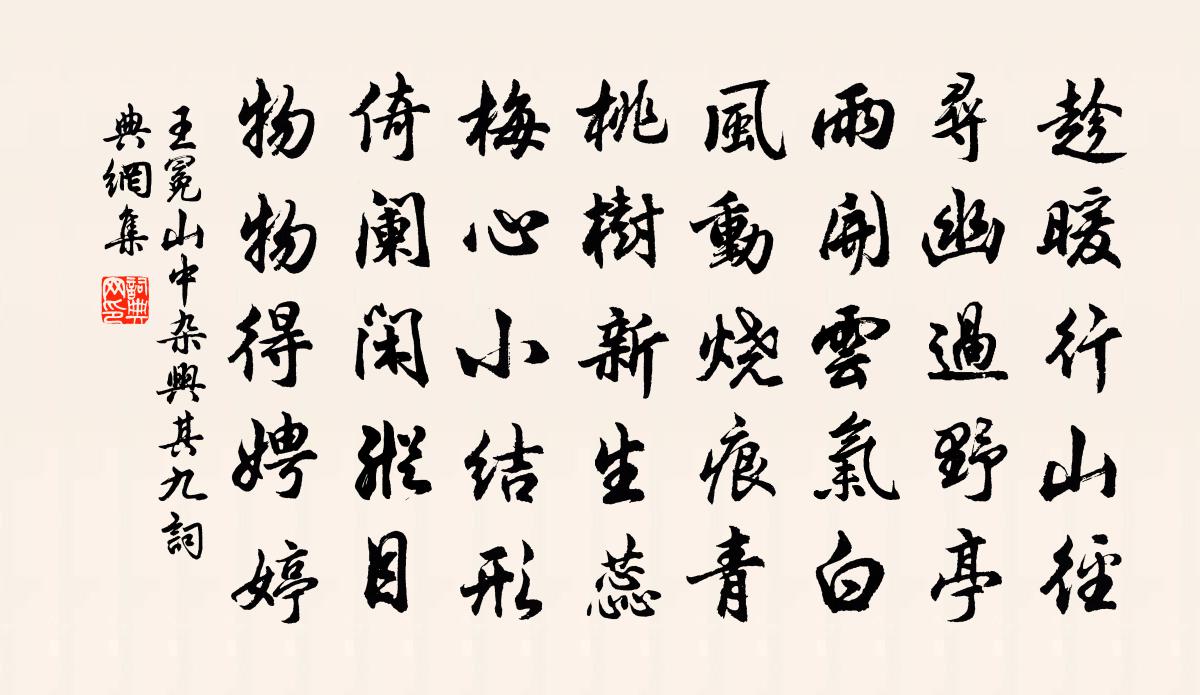 趁暖行山徑
尋幽過野亭
雨開雲氣白
風動燒痕青
桃樹新生蕊
梅心小结形
倚闌闲縱目
物物得娉婷
王冕山中杂興其九詞
典網集
詞典
网印